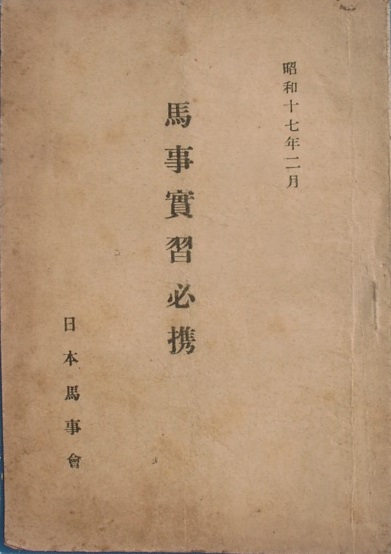 昭和十七年二月
馬事實習必携
日本馬事會